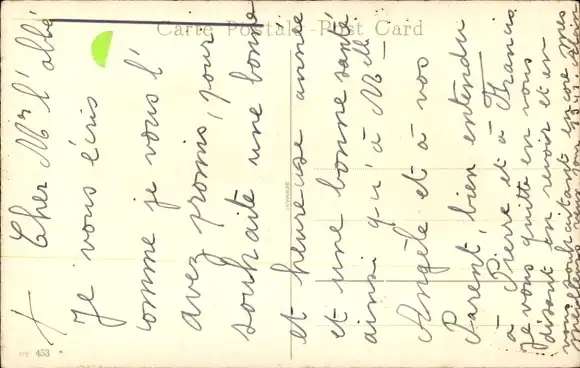 Carte Postale - Post Card
Cher Mr l'abbé
Je vous écris
comme je vous l'
avez promis, pour
souhaite une bonne
et heureuse année
et une bonne santé
ainsi qu'à Melle
Angèle et à vos
Parent, bien entendu
à Pierre et à Francis.
Je vous quitte en vous
disant en revoir et en
vous souhaitant encore mes
453